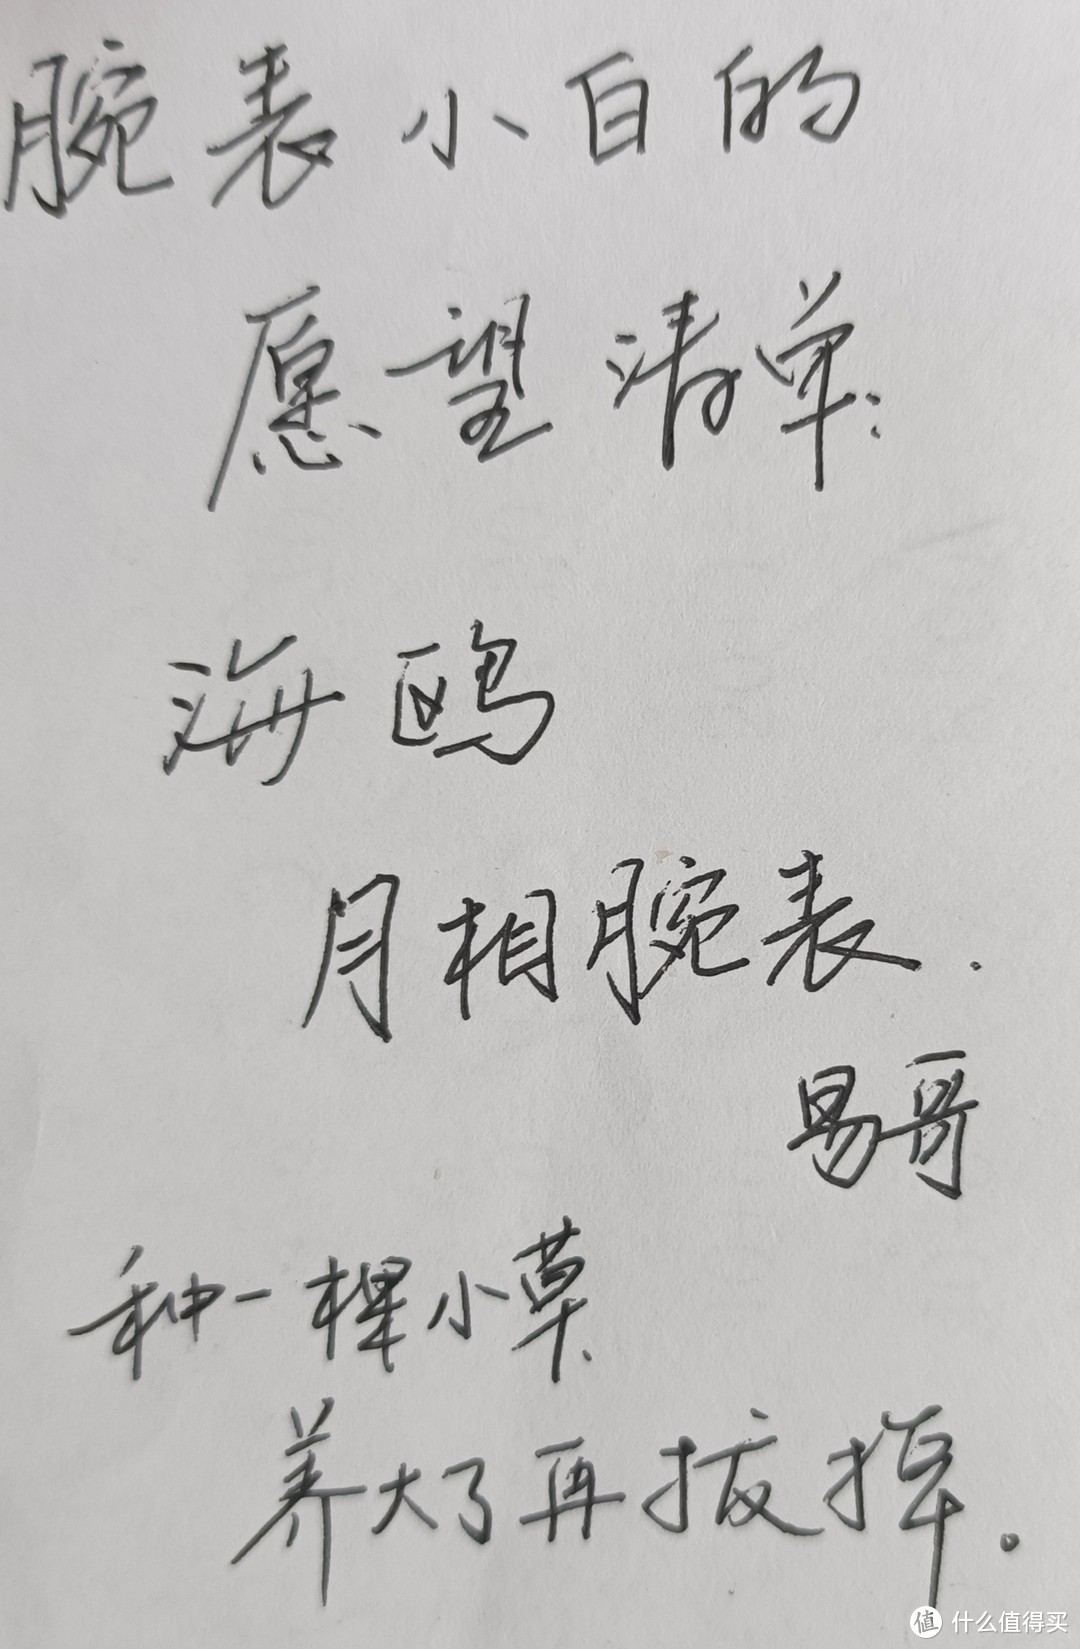 腕表小白的
愿望清单:
海鸥
月相腕表.
易哥
种一棵小草.
养大了再拔掉。
值 什么值得买